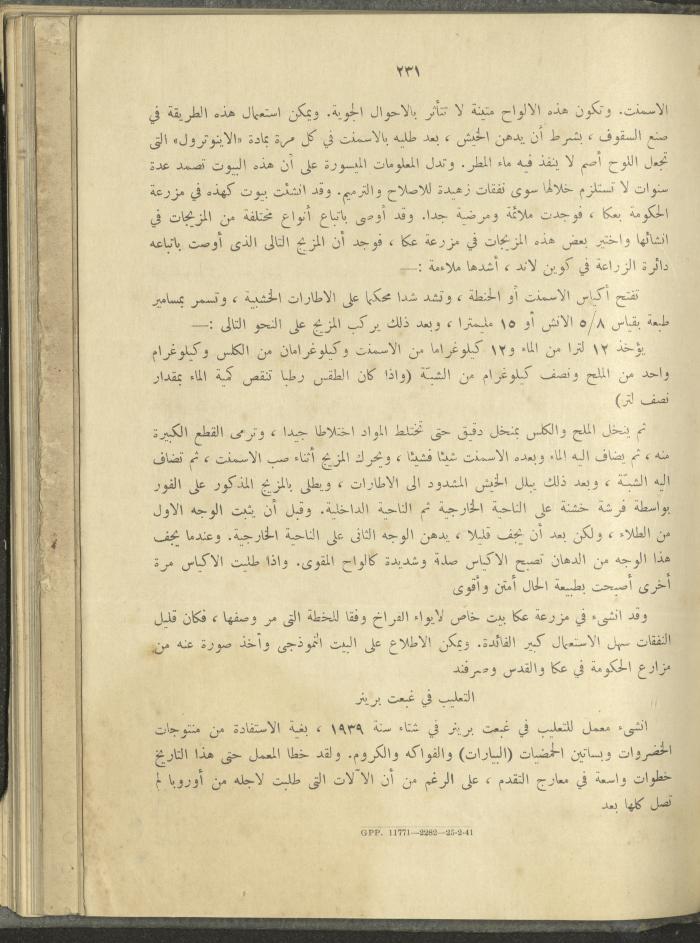 ٢٣١
الاسمنت. وتكون هذه الالواح متينة لا تتأثر بالاحوال الجوية. ويمكن استعمال هذه الطريقة في
صنع السقوف ، بشرط أن يدهن الخيش ، بعد طليه بالاسمنت في كل مرة بمادة «الاينوترول» التى
تجعل اللوح أصم لا ينفذ فيه ماء المطر. وتدل المعلومات الميسورة على أن هذه البيوت تصمد عدة
سنوات لا تستلزم خلالها سوى نفقات زهيدة للاصلاح والترميم. وقد انشئت بيوت كهذه في مزرعة
الحكومة بعكا ، فوجدت ملائمة ومرضية جدا. وقد أوصى باتباع أنواع مختلفة من المزيجات في
انشائها واختبر بعض هذه المزيجات في مزرعة عكا ، فوجد أن المزيج التالى الذى أوصت باتباعه
دائرة الزراعة في كوين لاند ، أشدها ملاءمة :—
تفتح أكياس الاسمنت أو الحنطة ، وتشد شدا محكما على الاطارات الخشبية ، وتسمر بمسامير
طبعة بقياس ٥/٨ الانش أو ١٥ مليمترا ، وبعد ذلك يركب المزيج على النحو التالى :—
يؤخذ ١٢ لترا من الماء و١٢ كيلوغراما من الاسمنت وكيلوغرامان من الكلس وكيلوغرام
واحد من الملح ونصف كيلوغرام من الشبّة (واذا كان الطقس رطبا تنقص كمية الماء بمقدار
نصف لتر)
ثم ينخل الملح والكلس بمنخل دقيق حتى تختلط المواد اختلاطا جيدا ، وترمى القطع الكبيرة
منه ، ثم يضاف اليه الماء وبعده الاسمنت شيئا فشيئا ، ويحرك المزيج أثناء صب الاسمنت ، ثم تضاف
اليه الشبّة ، وبعد ذلك يبلل الخيش المشدود الى الاطارات ، ويطلى بالمزيج المذكور على الفور
بواسطة فرشة خشنة على الناحية الخارجية ثم الناحية الداخلية. وقبل أن يثبت الوجه الاول
من الطلاء ، ولكن بعد أن يجف قليلا ، يدهن الوجه الثانى على الناحية الخارجية. وعندما يجف
هذا الوجه من الدهان تصبح الاكياس صلدة وشديدة كالواح المقوى. واذا طليت الاكياس مرة
أخرى أصبحت بطبيعة الحال أمتن وأقوى
وقد انشىء في مزرعة عكا بيت خاص لايواء الفراخ وفقا للخطة التى مر وصفها ، فكان قليل
النفقات سهل الاستعمال كبير الفائدة. ويمكن الاطلاع على البيت النموذجى وأخذ صورة عنه من
مزارع الحكومة في عكا والقدس وصرفند
التعليب في غبعت برينر
انشىء معمل للتعليب في غبعت برينر في شتاء سنة ١٩٣٩ ، بغية الاستفادة من منتوجات
الخضروات وبساتين الحمضيات (البيارات) والفواكه والكروم. ولقد خطا المعمل حتى هذا التاريخ
خطوات واسعة في معارج التقدم ، على الرغم من أن الآلات التى طلبت لاجله من أوروبا لم
تصل كلها بعد
GPP. 11771—2282—25-2-41